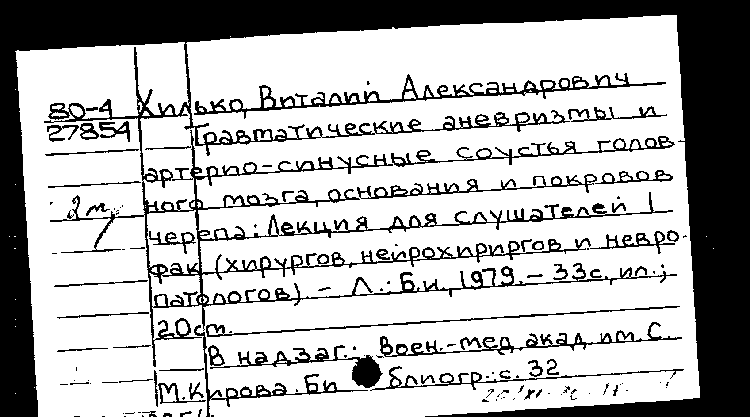 80-4 Хилько, Виталий Александрович
27854 Травматические аневризмы и
артерио-синусные соустья голов-
2т, ного мозга, основания и покровов
черепа: Лекция для слушателей I
фак. (хирургов, нейрохирургов и невро-
патологов). - Л.: Б.и., 1979. - 33с., ил.;
20см.
В надзаг.: Воен.-мед. акад. им. С.
М. Кирова. Би блиогр.: с. 32